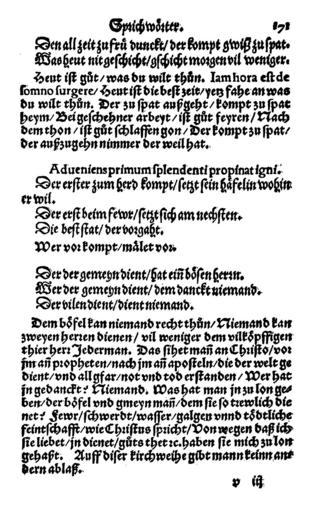 Sprichwörter. 171
Den all zeit zu frü dunckt/der kompt gwiß zu spat.
Was heut nit geschicht/gschicht morgen vil weniger.
Heut ist gůt/was du wilt thůn. Iam hora est de
somno surgere/Heut ist die best zeit/yetz fahe an was
du wilt thůn. Der zu spat auffgeht/kompt zu spat
heym/Bei geschehner arbeyt/ist gůt feyren/Nach
dem thon/ist gůt schlaffen gon. Der kompt zu spat/
der auffzugehn nimmer der weil hat.
Adueniens primum splendenti propinat igni.
Der erster zum herd kompt/setzt sein häfelin wohin
er wil.
Der erst beim fewr/setzt sich am nechsten.
Die best stat/der vorgaht.
Wer vor kompt/målet vor.
Der der gemeyn dient/hat ein̄ bösen herrn.
Wer der gemeyn dient/dem danckt niemand.
Der vilen dient/dient niemand.
Dem böfel kan niemand recht thůn/Niemand kan
zweyen herren dienen/vil weniger dem vilköpffigen
thier herr Jederman. Das sihet man̄ an Christo/vor
jm an̄ propheten/nach jm an̄ aposteln/die der welt ge
dient/vnd all gfar/not vnd tod erstanden/Wer hat
jn gedanckt? Niemand. Was hat man jn zu lon ge-
ben/der böfel vnd gmeyn man̄/dem sie so trewlich die
net? Fewr/schwerdt/wasser/galgen vnnd tödtliche
feintschafft/wie Christus spricht/Von wegen daß ich
sie liebet/jn dienet/gůts thet ꝛc. haben sie mich zu lon
gehaßt. Auff diser kirchweihe gibt mann keinn an-
dern ablaß.
v iij